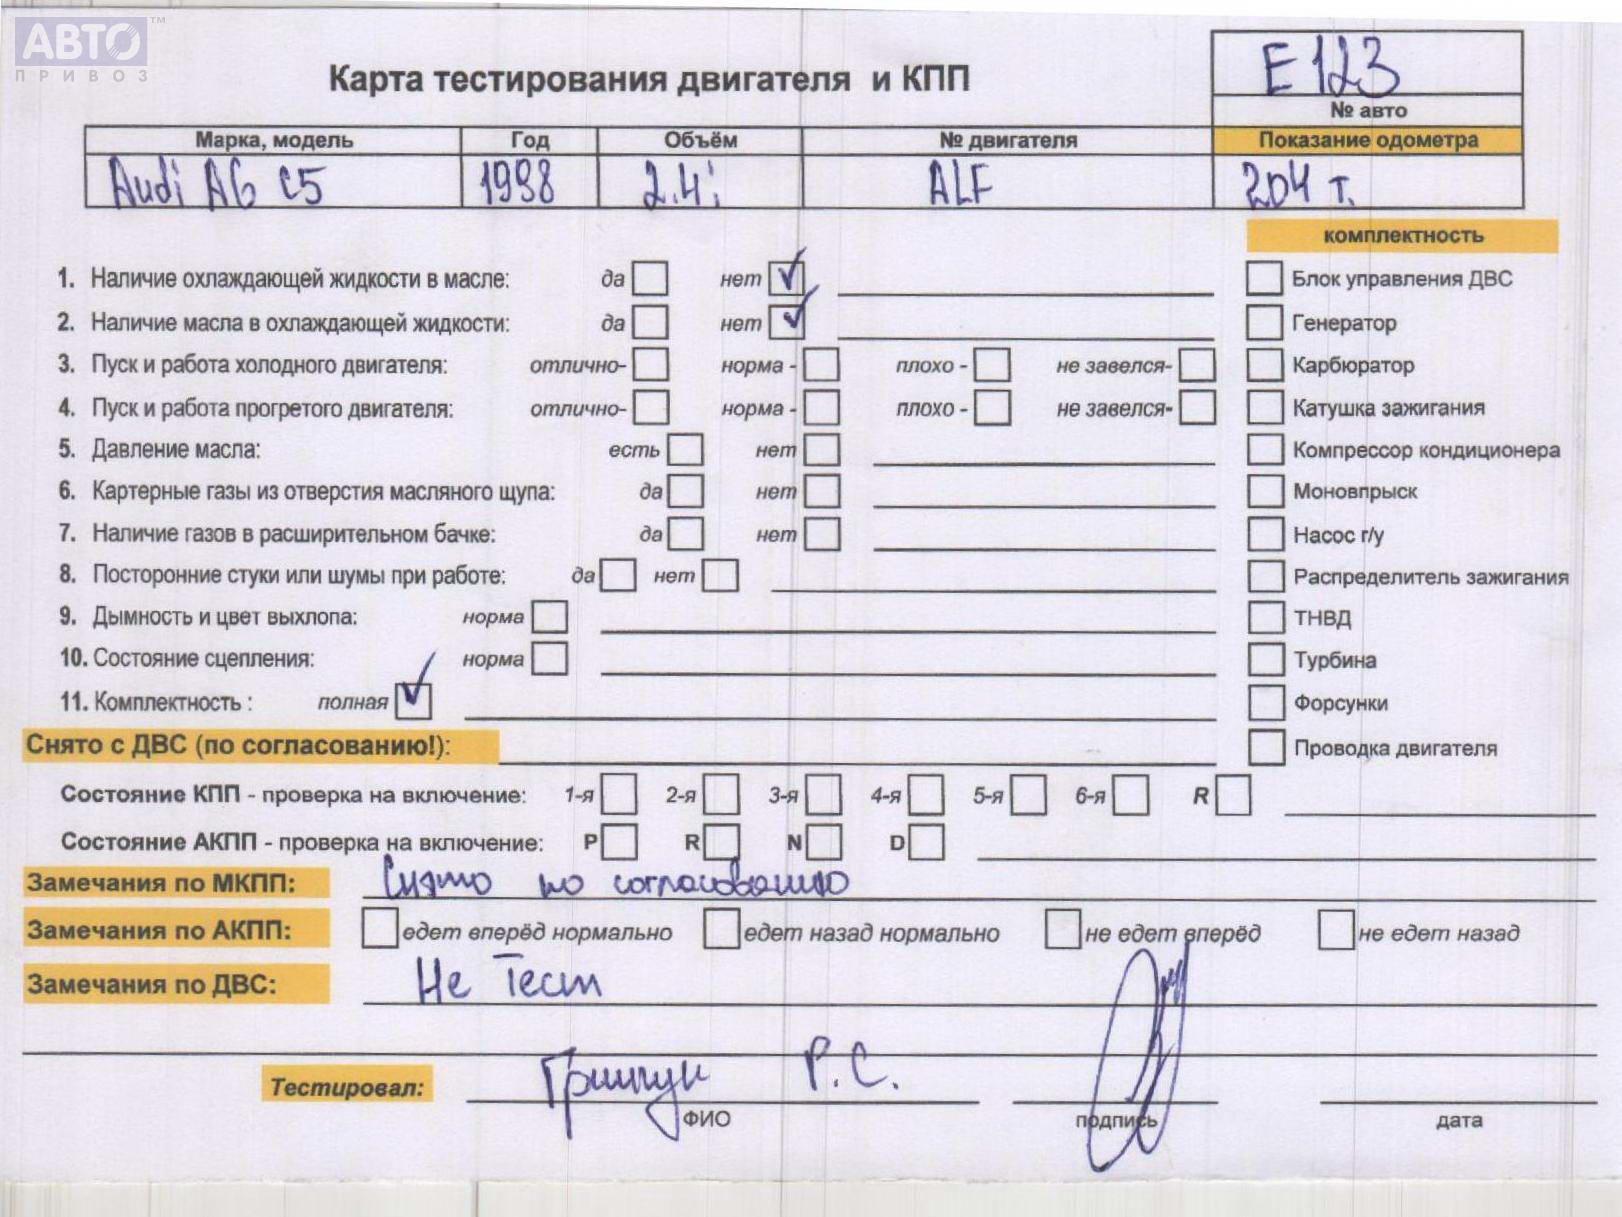 АВТО™
ПРИВОЗ
Карта тестирования двигателя и КПП
E123
№ авто
Марка, модель Год Объём № двигателя Показание одометра
Audi A6 C5 1998 2.4i ALF 204 т.
комплектность
1. Наличие охлаждающей жидкости в масле: да нет ✓ Блок управления ДВС
2. Наличие масла в охлаждающей жидкости: да нет ✓ Генератор
3. Пуск и работа холодного двигателя: отлично- норма - плохо - не завелся- Карбюратор
4. Пуск и работа прогретого двигателя: отлично- норма - плохо - не завелся- Катушка зажигания
5. Давление масла: есть нет Компрессор кондиционера
6. Картерные газы из отверстия масляного щупа: да нет Моновпрыск
7. Наличие газов в расширительном бачке: да нет Насос г/у
8. Посторонние стуки или шумы при работе: да нет Распределитель зажигания
9. Дымность и цвет выхлопа: норма ТНВД
10. Состояние сцепления: норма Турбина
11. Комплектность : полная ✓ Форсунки
Снято с ДВС (по согласованию!): Проводка двигателя
Состояние КПП - проверка на включение: 1-я 2-я 3-я 4-я 5-я 6-я R
Состояние АКПП - проверка на включение: P R N D
Замечания по МКПП: Снято по согласованию
Замечания по АКПП: едет вперёд нормально едет назад нормально не едет вперёд не едет назад
Замечания по ДВС: Не Тест
Тестировал: Р.С.
ФИО подпись дата